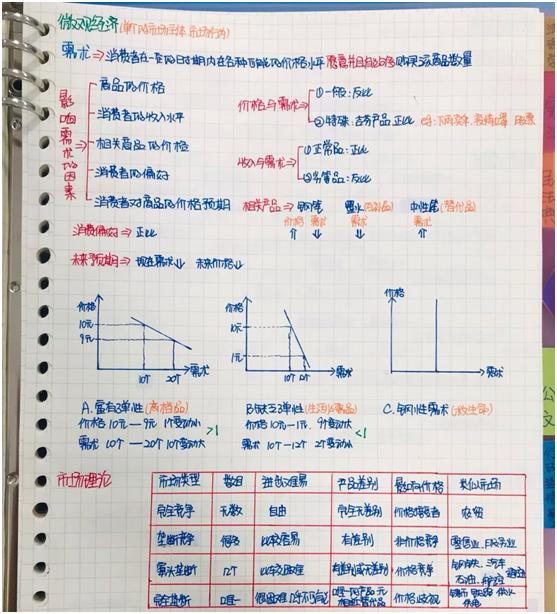 微观经济(单个的市场主体 市场行为)
需求⇒消费者在一定的时期内在各种可能的价格水平愿意并且能够购买该商品数量
影响需求的因素
商品的价格
消费者的收入水平
相关商品的价格
消费者的偏好
消费者对商品的价格预期
价格与需求⇒
①一般:反比
②特殊:吉芬产品 正比
收入与需求⇒
①正常品:正比
②劣等品:反比
相关产品⇒ 钢笔 墨水(互补品) 中性笔(替代品)
价格 需求 需求 需求
↑ ↓ ↓ ↑
消费偏好⇒正比
未来预期⇒现在需求↓ 未来价格↓
价格
10元
9元
10个 20个 需求
价格
10元
1元
10个 12个 需求
价格
需求
A.富有弹性(高档品)
价格 10元—9元 1个变动小
需求 10个—20个 10个变动大
>1
B.缺乏弹性(生活必需品)
价格 10元—1元 9个变动大
需求 10个—12个 2个变动小
<1
C.钢性需求(救生命)
市场理论
市场类型 数目 进出难易 产品差别 影响价格 类似市场
完全竞争 无数 自由 完全无差别 价格接受者 农贸
垄断竞争 很多 比较容易 有差别 非价格竞争 零售业
寡头垄断 几个 比较困难 有差别或无差别 价格竞争 钢铁 汽车 石油
完全垄断 唯一 很困难 几乎不可能 唯一的产品 无相近替代品 价格歧视